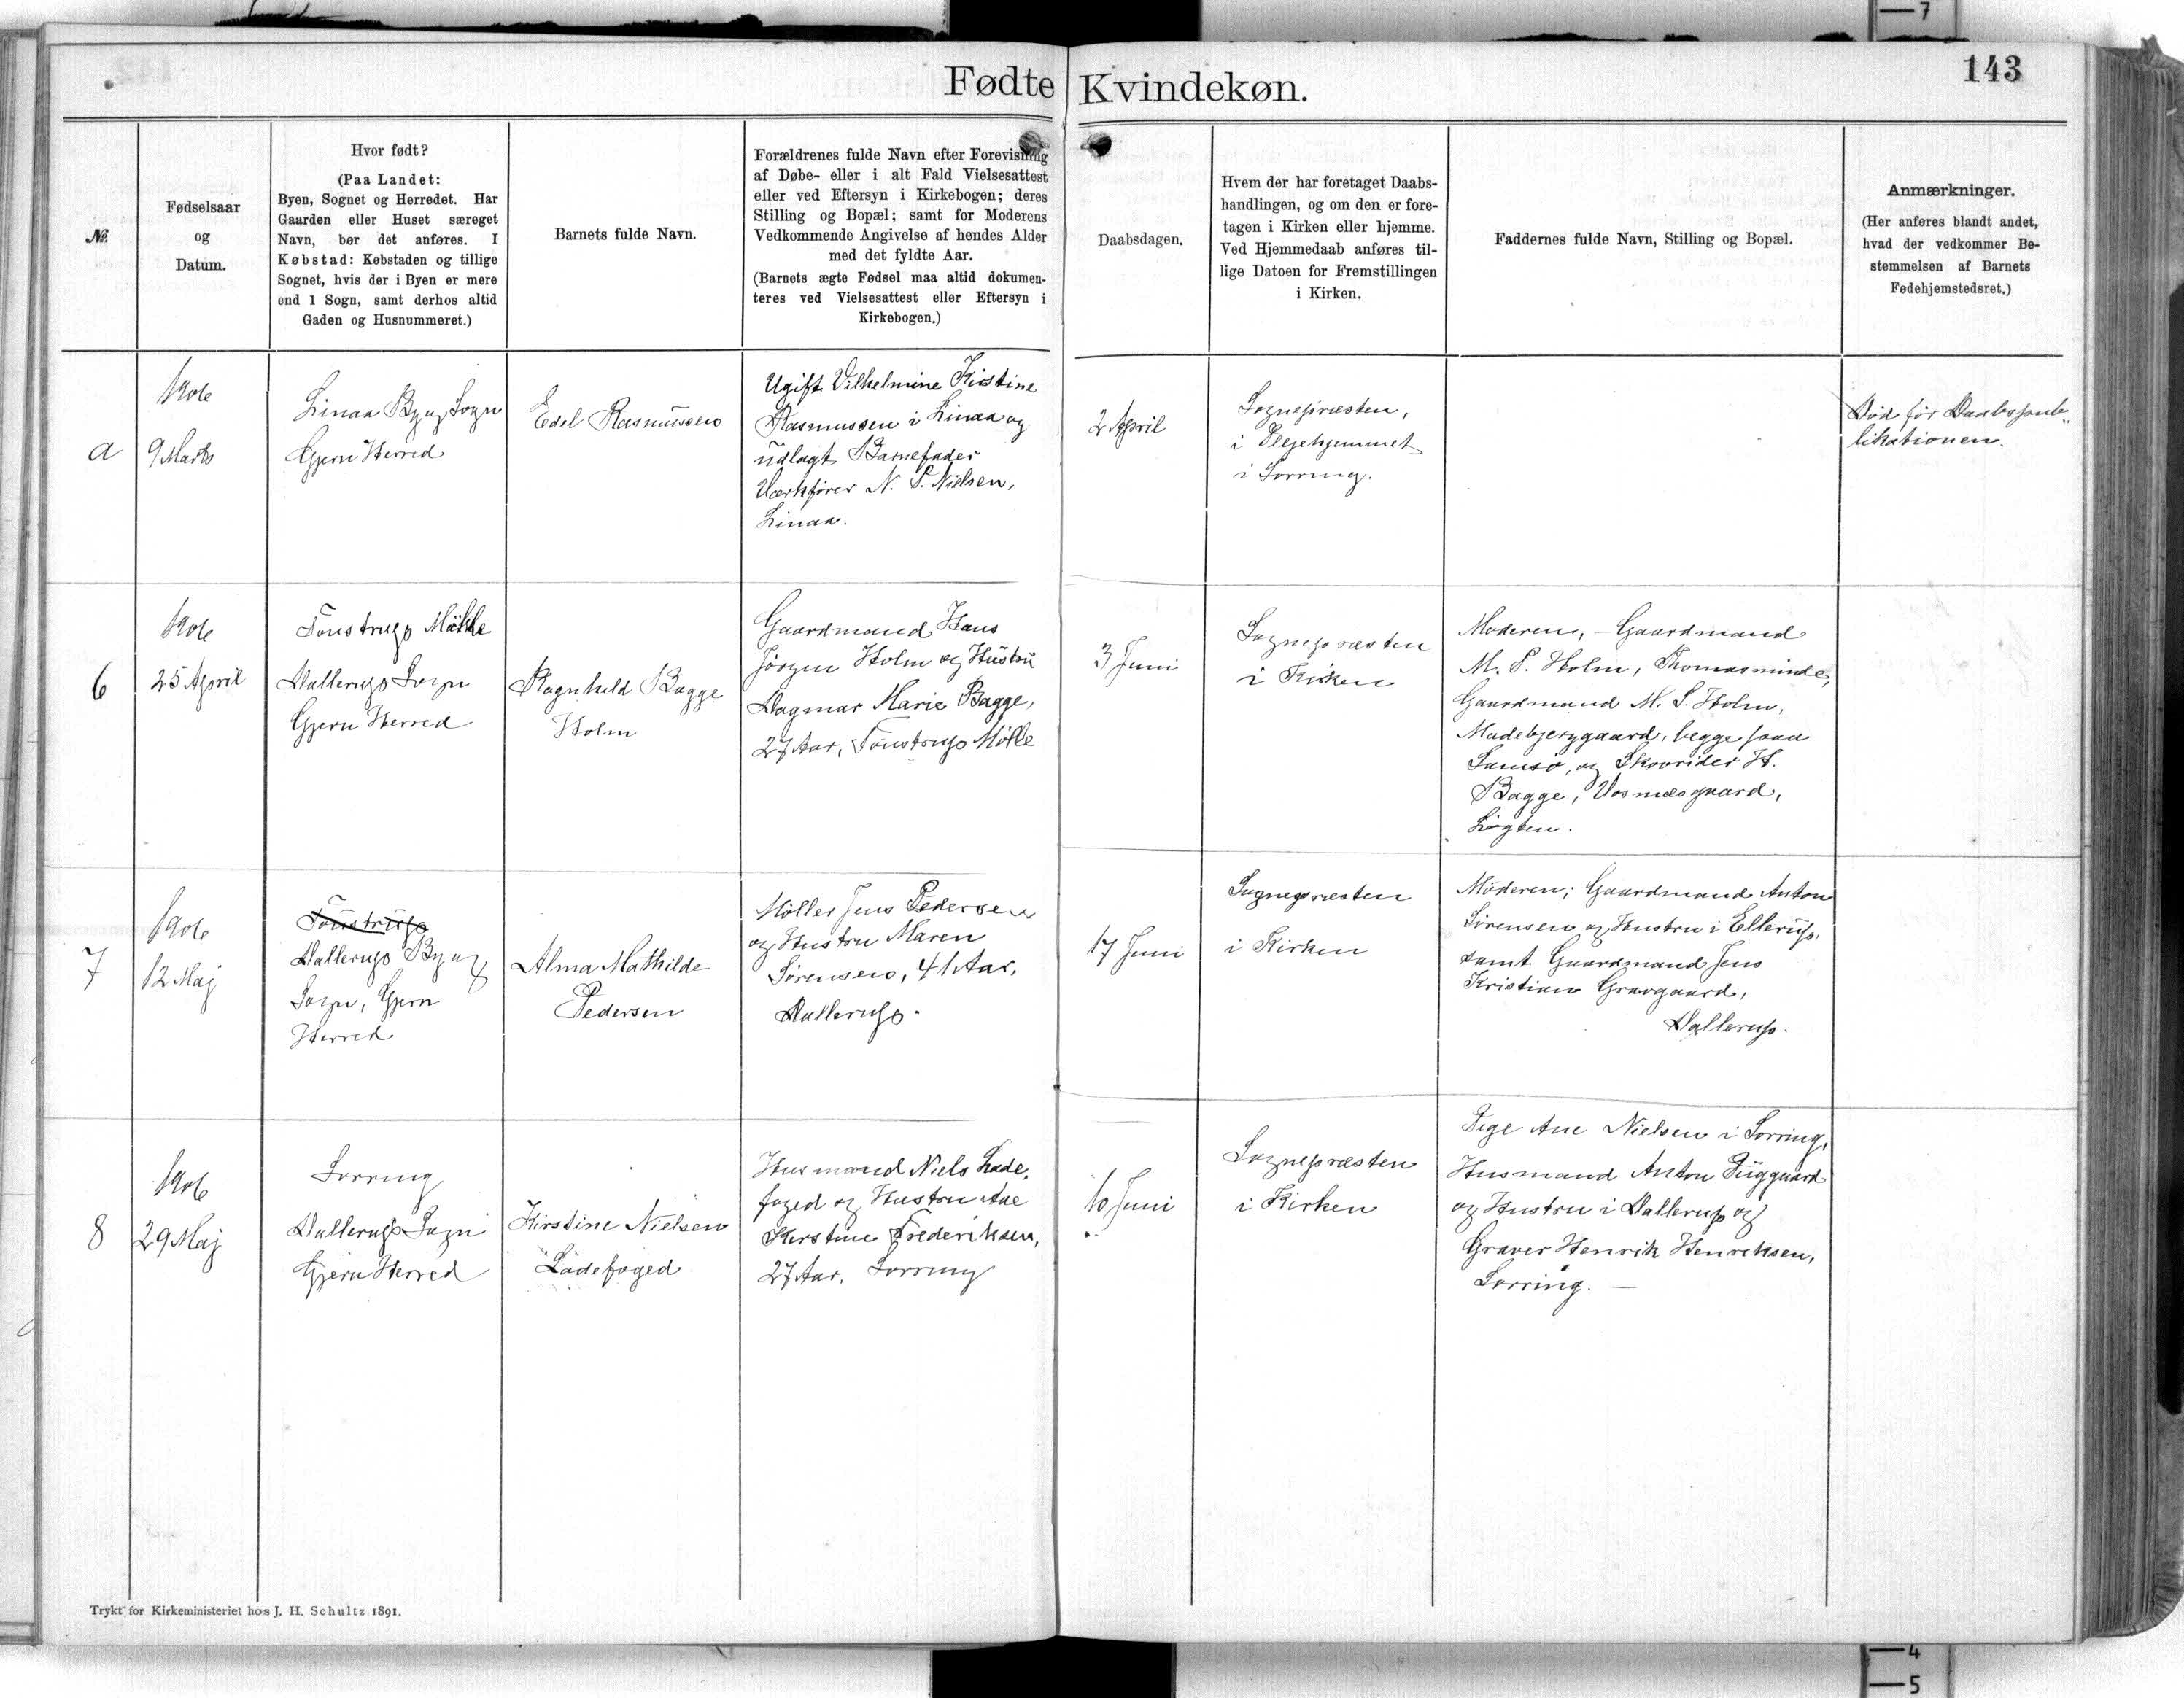 Fødte Kvindekøn.
143
№
Fødselsaar
og
Datum.
Hvor født?
(Paa Landet:
Byen, Sognet og Herredet. Har
Gaarden eller Huset særeget
Navn, bør det anføres. I
Købstad: Købstaden og tillige
Sognet, hvis der i Byen er mere
end 1 Sogn, samt derhos altid
Gaden og Husnummeret.)
Barnets fulde Navn.
Forældrenes fulde Navn efter Forevisning
af Døbe- eller i alt Fald Vielsesattest
eller ved Eftersyn i Kirkebogen; deres
Stilling og Bopæl; samt for Moderens
Vedkommende Angivelse af hendes Alder
med det fyldte Aar.
(Barnets ægte Fødsel maa altid dokumen-
teres ved Vielsesattest eller Eftersyn i
Kirkebogen.)
Daabsdagen.
Hvem der har foretaget Daabs-
handlingen, og om den er fore-
tagen i Kirken eller hjemme.
Ved Hjemmedaab anføres til-
lige Datoen for Fremstillingen
i Kirken.
Faddernes fulde Navn, Stilling og Bopæl.
Anmærkninger.
(Her anføres blandt andet,
hvad der vedkommer Be-
stemmelsen af Barnets
Fødehjemstedsret.)
a
1906
9 Marts
Linaa By og Sogn
Gjern Herred
Edel Rasmussen
Ugift Vilhelmine Kirstine
Rasmussen i Linaa og
udlagt Barnefader
Værkfører N. P. Nielsen,
Linaa.
2 April
Sognepræsten,
i Plejehjemmet
i Sorring.
Død før Daabspub-
likationen.
6
1906
25 April
Toustrup Mølle
Dallerup Sogn
Gjern Herred
Ragnhild Bagge
Holm
Gaardmand Hans
Jörgen Holm og Hustru
Dagmar Marie Bagge,
27 Aar, Toustrup Mølle
3 Juni
Sognepræsten
i Kirken
Moderen, - Gaardmand
M. P. Holm, Thomasminde,
Gaardmand M. S. Holm,
Madebjerggaard, begge paa
Samsø, og Skovrider H.
Bagge, Vosnæsgaard,
Løgten.
7
1906
12 Maj
Toustrup
Dallerup By og
Sogn, Gjern
Herred
Alma Mathilde
Pedersen
Møller Jens Pedersen
og Hustru Maren
Sørensen, 41 Aar,
Dallerup.
17 Juni
Sognepræsten
i Kirken
Moderen; Gaardmand Anton
Sörensen og Hustru i Ellerup,
samt Gaardmand Jens
Kristian Gravgaard,
Dallerup.
8
1906
29 Maj
Sorring
Dallerup Sogn
Gjern Herred
Kirstine Nielsen
Ladefoged
Husmand Niels Lade-
foged og Hustru Ane
Kirstine Frederiksen,
27 Aar, Sorring
10 Juni
Sognepræsten
i Kirken
Pige Ane Nielsen i Sorring,
Husmand Anton
og Hustru i Dallerup og
Graver Henrik Henriksen,
Sorring. —
Trykt for Kirkeministeriet hos J. H. Schultz 1891.
7
4
5